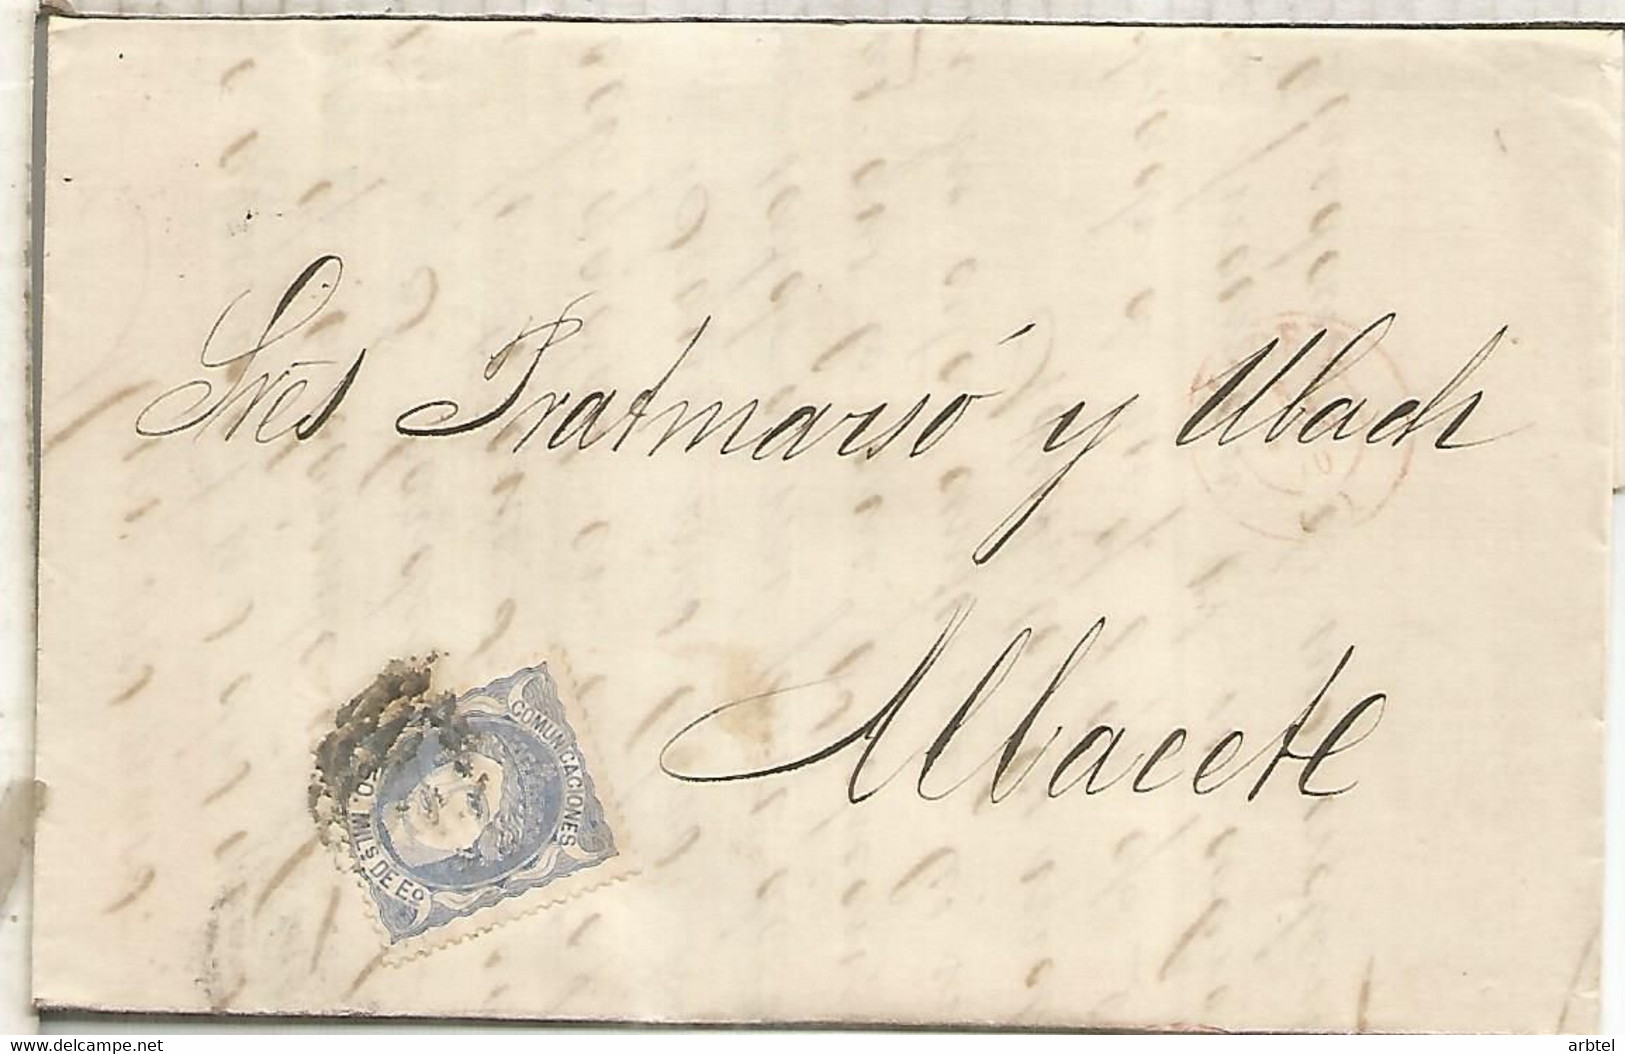 Sres Pratmarsó y Ubach
Albacete
COMUNICACIONES
50 MILs DE Eo
www.delcampe.com
arbtel